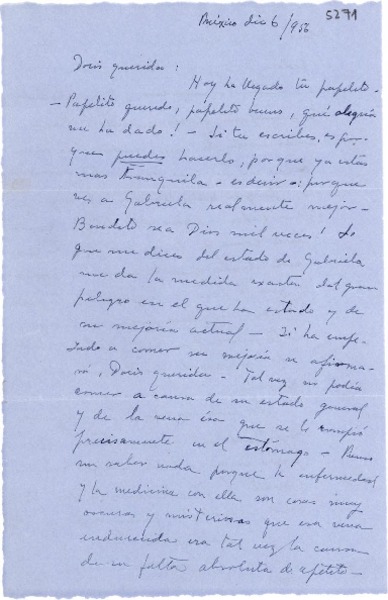 México dic 6/956 5271
Doris querida:
Hoy ha llegado tu papelito -
- Papelito querido, papelito bueno, qué alegría
me ha dado! - Si tu escribes, es por-
que puedes hacerlo, porque ya estás
mas tranquila - es decir: porque
ves a Gabriela realmente mejor -
Bendito sea Dios mil veces! Lo
que me dices del estado de Gabriela
me da la medida exacta del gran
peligro en el que ha estado y de
su mejoría actual - Si ha empe-
zado a comer su mejoría se afirma-
rá, Doris querida - Tal vez no podía
comer a causa de su estado general
y de la vena ésa que se le rompió
precisamente en el estómago -
sin saber nada porque la enfermedad
y la medicina con ella son cosas muy
oscuras y misteriosas que esa vena
endurecida era tal vez la causa
de su falta absoluta de apetito -